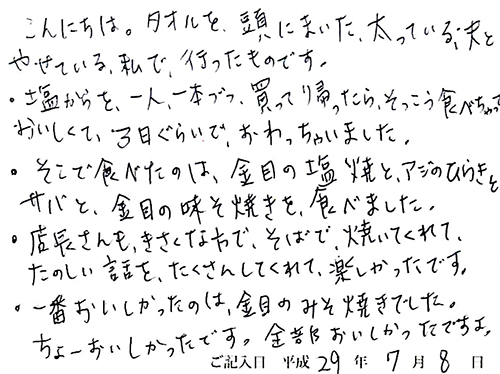 こんにちは。タオルを、頭にまいた、太っている、夫と
やせている、私で、行ったものです。
・塩からを、一人、一本づつ、買って帰ったら、そっこう食べちゃって
おいしくて、3日ぐらいで、おわっちゃいました。
・そこで食べたのは、金目の塩焼と、アジのひらきと
サバと、金目の味そ焼きを、食べました。
・店長さんも、きさくな方で、そばで、焼いてくれて、
たのしい話を、たくさんしてくれて、楽しかったです。
・一番おいしかったのは、金目のみそ焼きでした。
ちょーおいしかったです。全部おいしかったですよ。
ご記入日 平成 29 年 7 月 8 日